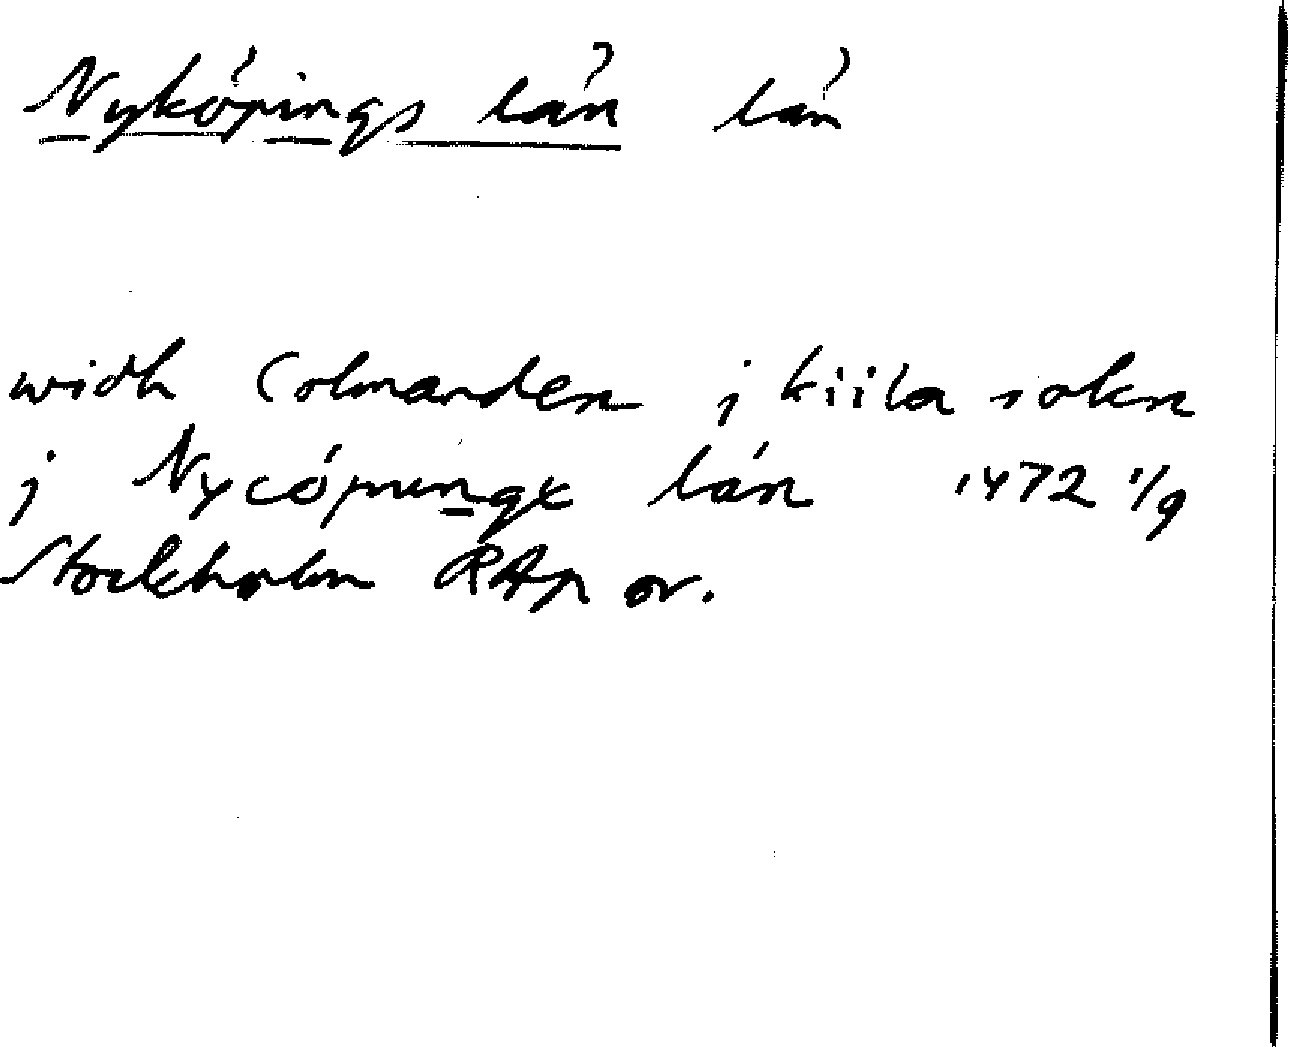 Nyköpings län län
widh Colmarden j kiila sokn
j Nycöpungx län 1472 1/9
Stockholm RAp or.